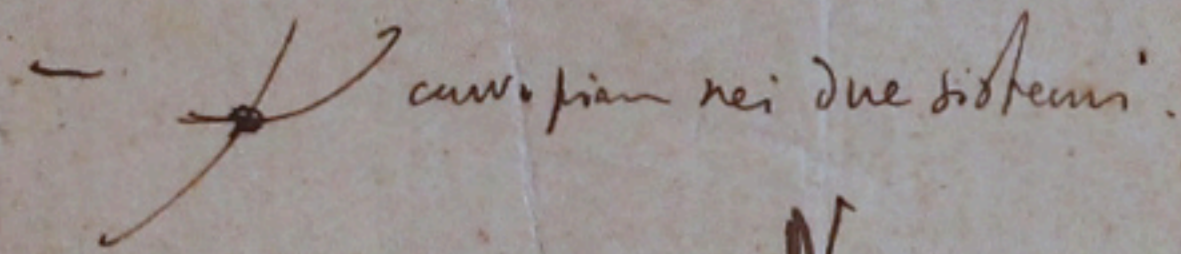 – curve piane nei due sistemi.
N